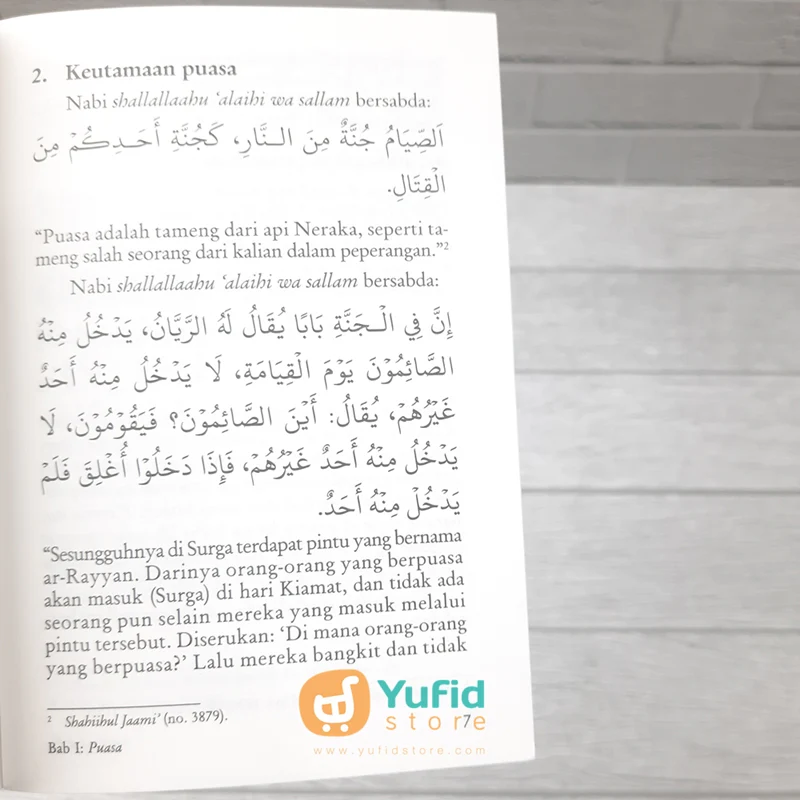 2. Keutamaan puasa
Nabi shallallaahu ‘alaihi wa sallam bersabda:
اَلصِّيَامُ جُنَّةٌ مِنَ الـنَّارِ، كَجُنَّةِ أَحَـدِكُمْ مِنَ
الْقِتَالِ.
“Puasa adalah tameng dari api Neraka, seperti ta-
meng salah seorang dari kalian dalam peperangan.”2
Nabi shallallaahu ‘alaihi wa sallam bersabda:
إِنَّ فِي الْـجَنَّةِ بَابًا يُقَالُ لَهُ الرَّيَّانُ، يَدْخُلُ مِنْهُ
الصَّائِمُوْنَ يَوْمَ الْقِيَامَةِ، لَا يَدْخُلُ مِنْهُ أَحَدٌ
غَيْرُهُمْ، يُقَالُ: أَيْنَ الصَّائِمُوْنَ؟ فَيَقُوْمُوْنَ، لَا
يَدْخُلُ مِنْهُ أَحَدٌ غَيْرُهُمْ، فَإِذَا دَخَلُوْا أُغْلِقَ فَلَمْ
يَدْخُلْ مِنْهُ أَحَدٌ.
“Sesungguhnya di Surga terdapat pintu yang bernama
ar-Rayyan. Darinya orang-orang yang berpuasa
akan masuk (Surga) di hari Kiamat, dan tidak ada
seorang pun selain mereka yang masuk melalui
pintu tersebut. Diserukan: ‘Di mana orang-orang
yang berpuasa?’ Lalu mereka bangkit dan tidak
2 Shahiihul Jaami’ (no. 3879).
Bab I: Puasa
7
Yufid
store
www.yufidstore.com